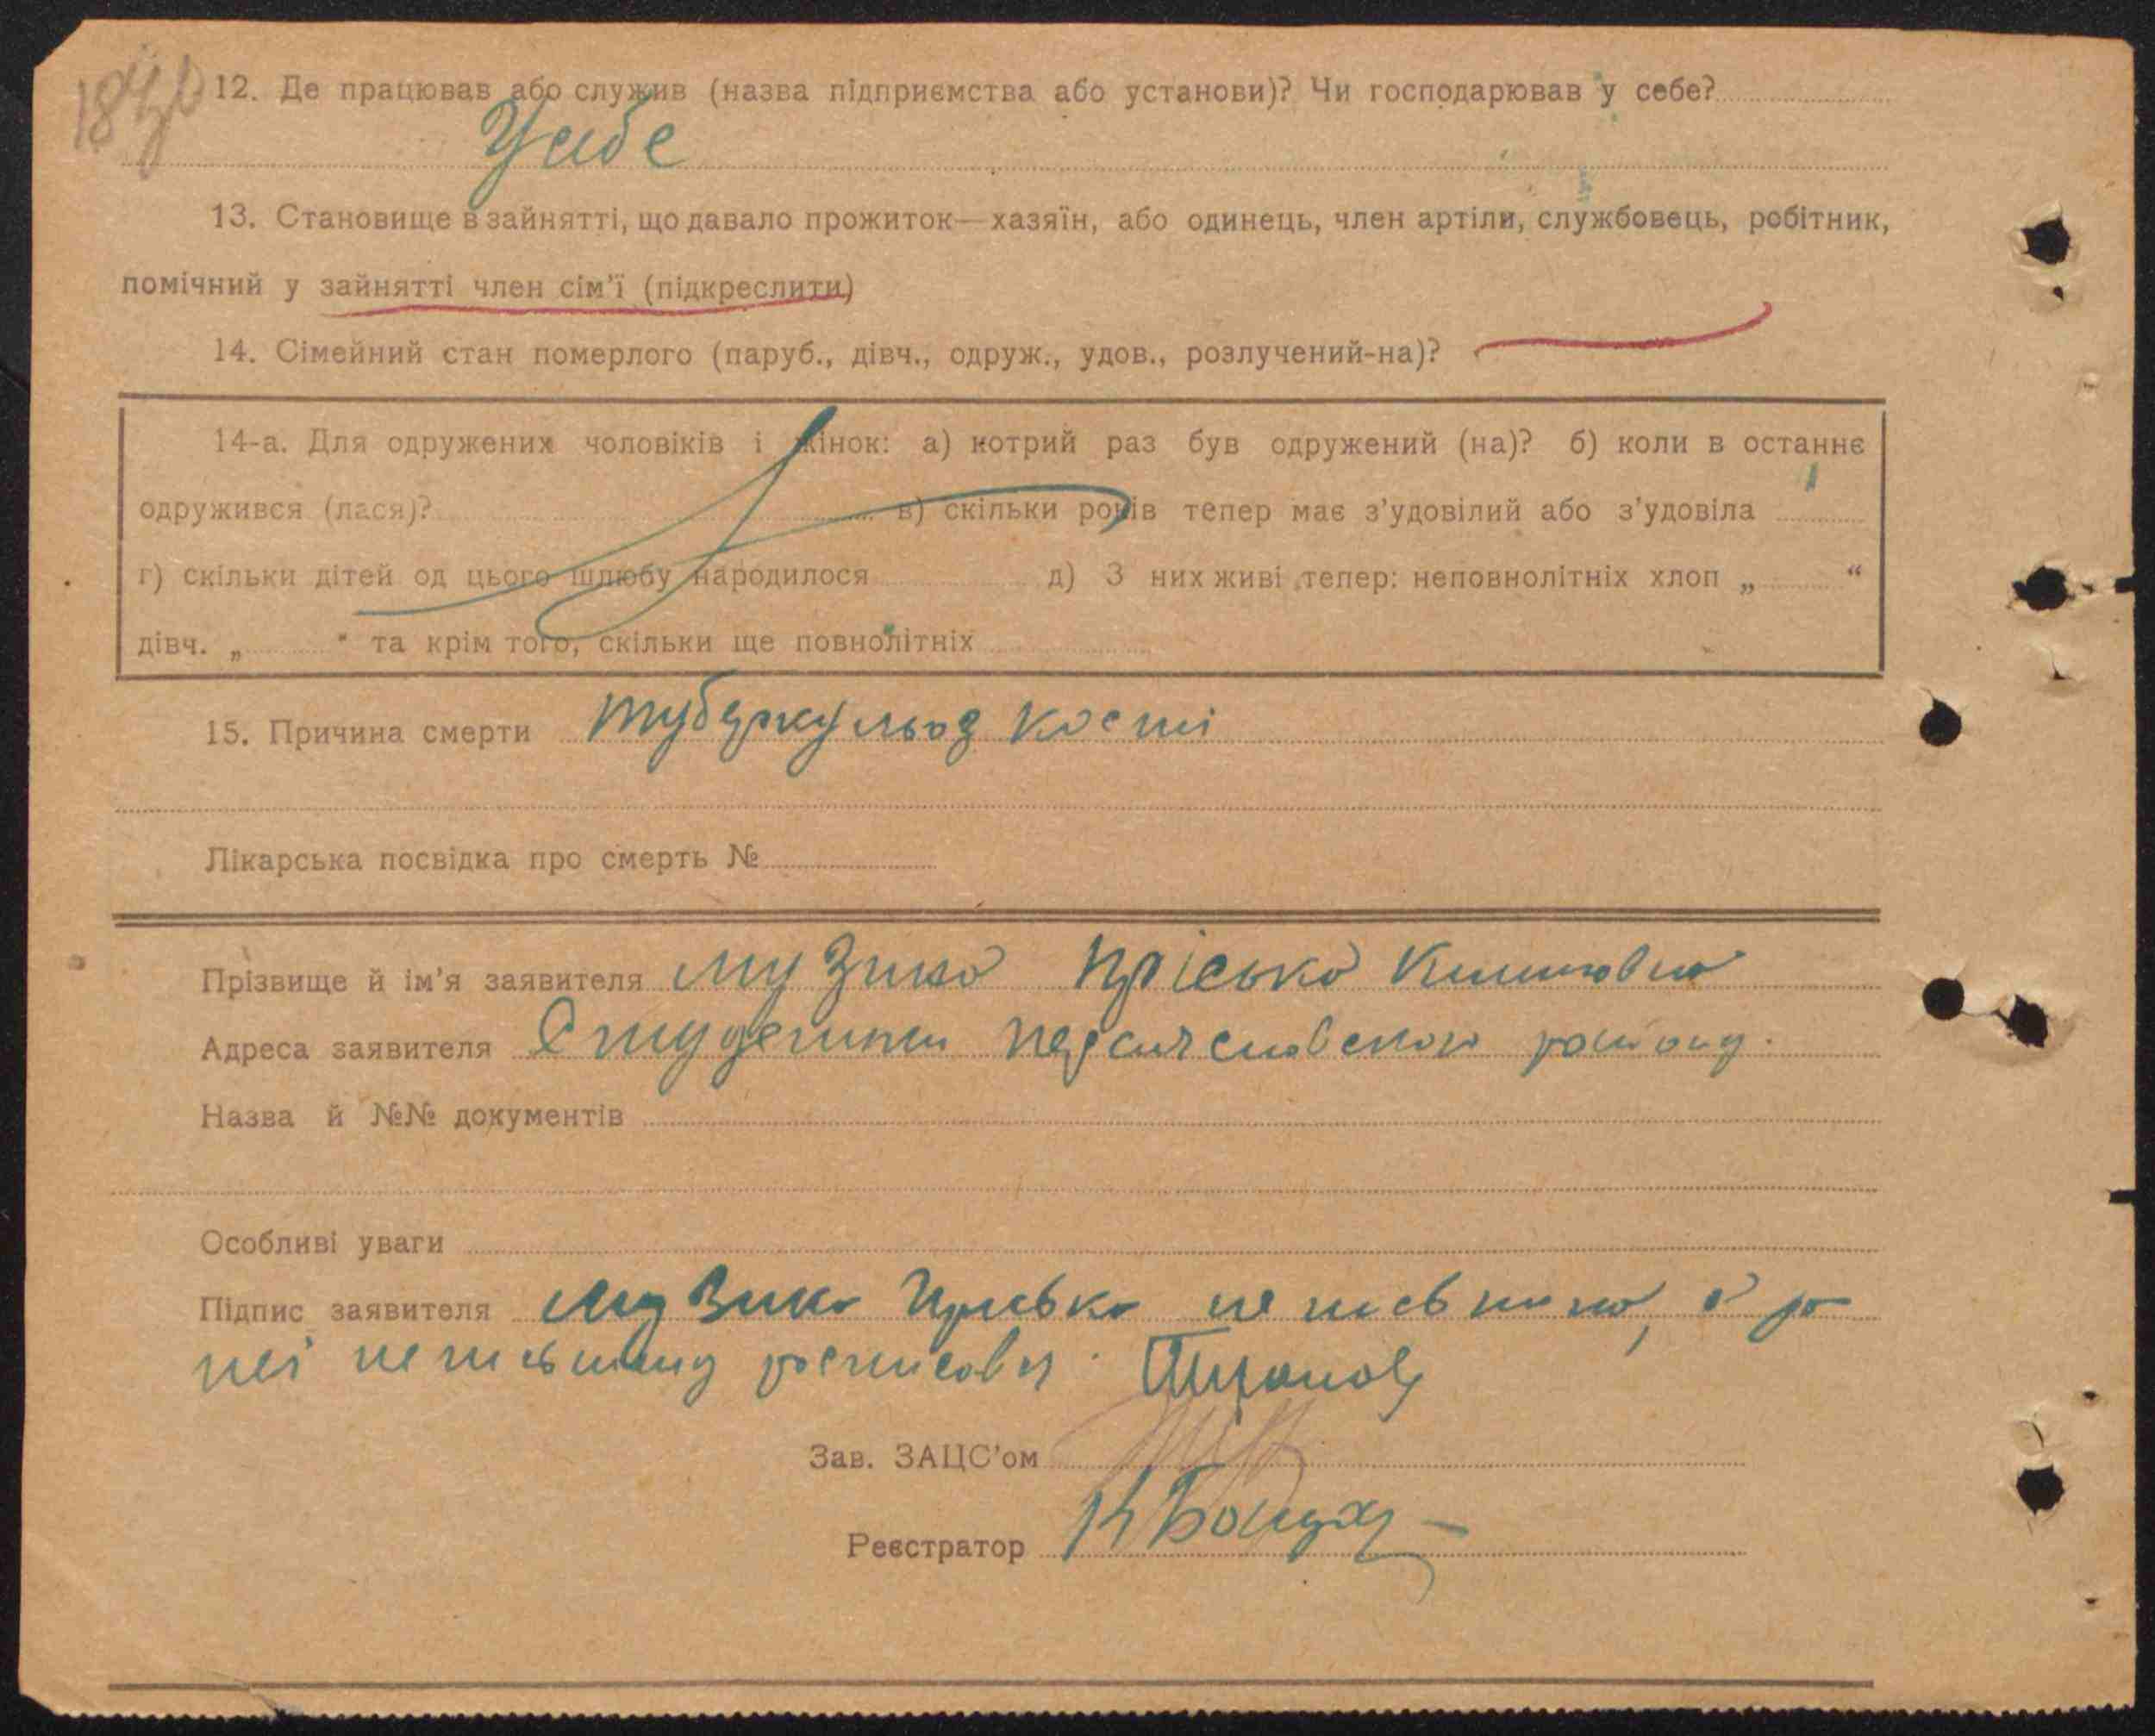 12. Де працював або служив (назва підприємства або установи)? Чи господарював у себе?
У себе
13. Становище в зайнятті, що давало прожиток—хазяїн, або одинець, член артіли, службовець, робітник,
помічний у зайнятті член сім'ї (підкреслити)
14. Сімейний стан померлого (паруб., дівч., одруж., удов., розлучений-на)?
14-а. Для одружених чоловіків і жінок: а) котрий раз був одружений (на)? б) коли в останнє
одружився (лася)? в) скільки років тепер має з'удовілий або з'удовіла
г) скільки дітей од цього шлюбу народилося д) З них живі тепер: неповнолітніх хлоп „ “
дівч. „ “ та крім того, скільки ще повнолітніх
15. Причина смерти туберкульоз кости
Лікарська посвідка про смерть №
Прізвище й ім'я заявителя Музика Пріська
Адреса заявителя району.
Назва й №№ документів
Особливі уваги
Підпис заявителя Музика Приська не письмина,
неї
Зав. ЗАЦС'ом
Реєстратор